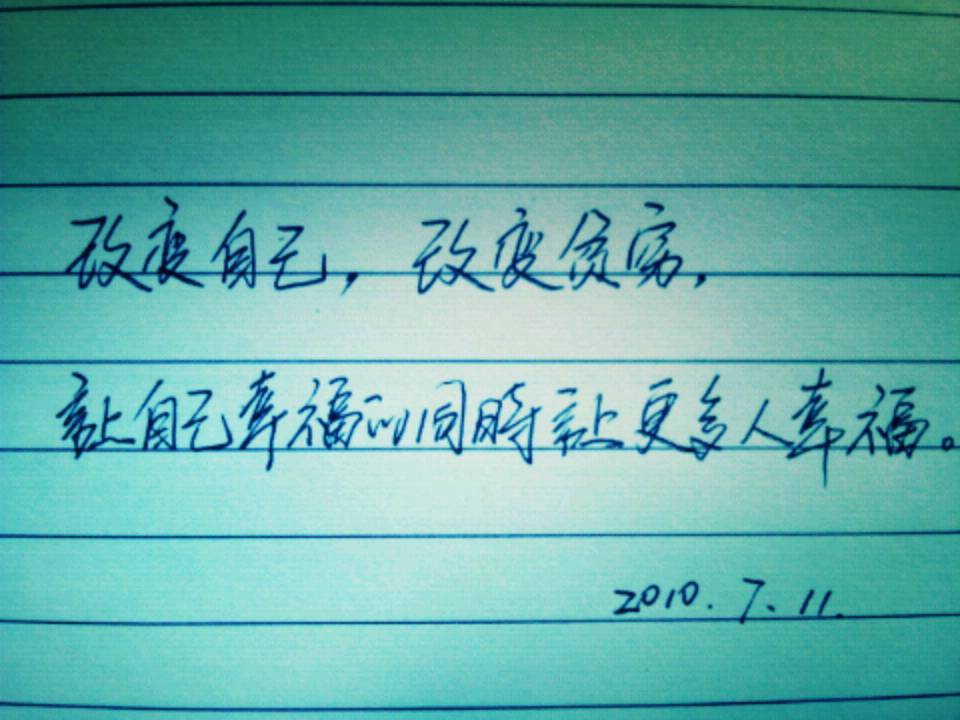 改变自己，改变贫穷，
让自己幸福的同時让更多人幸福。
2010.7.11.